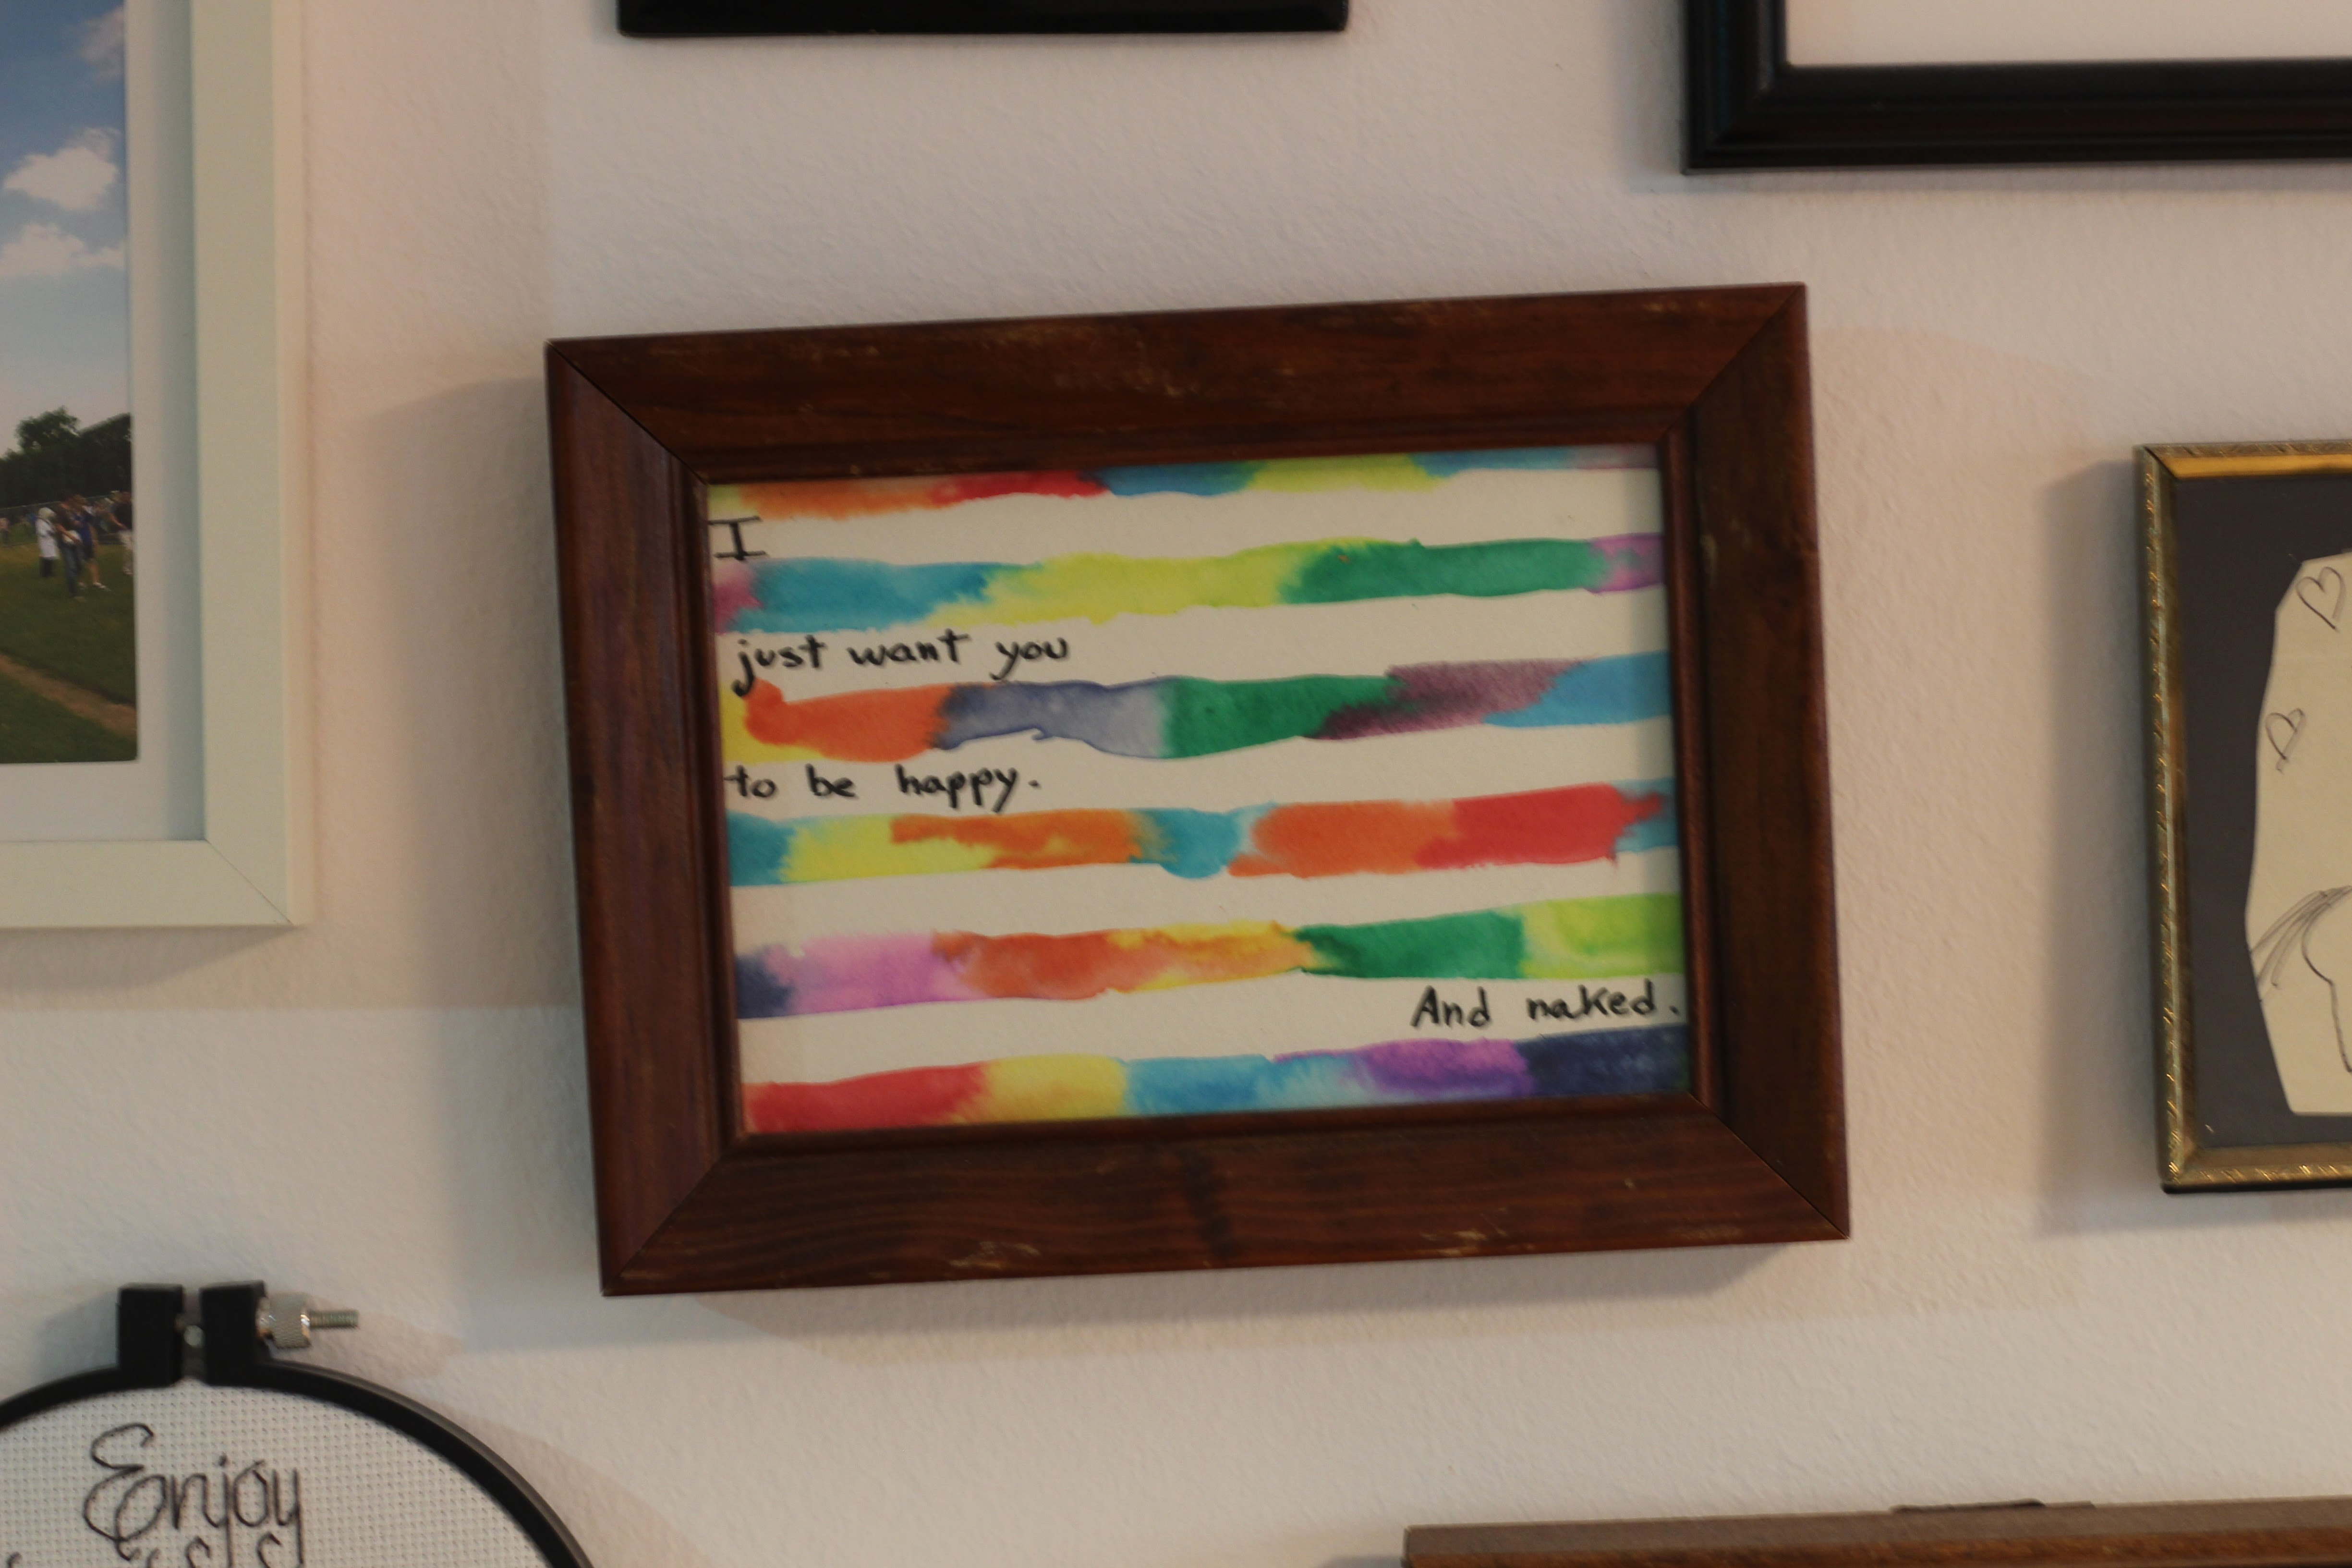 I
just want you
to be happy.
And naked.
Enjoy